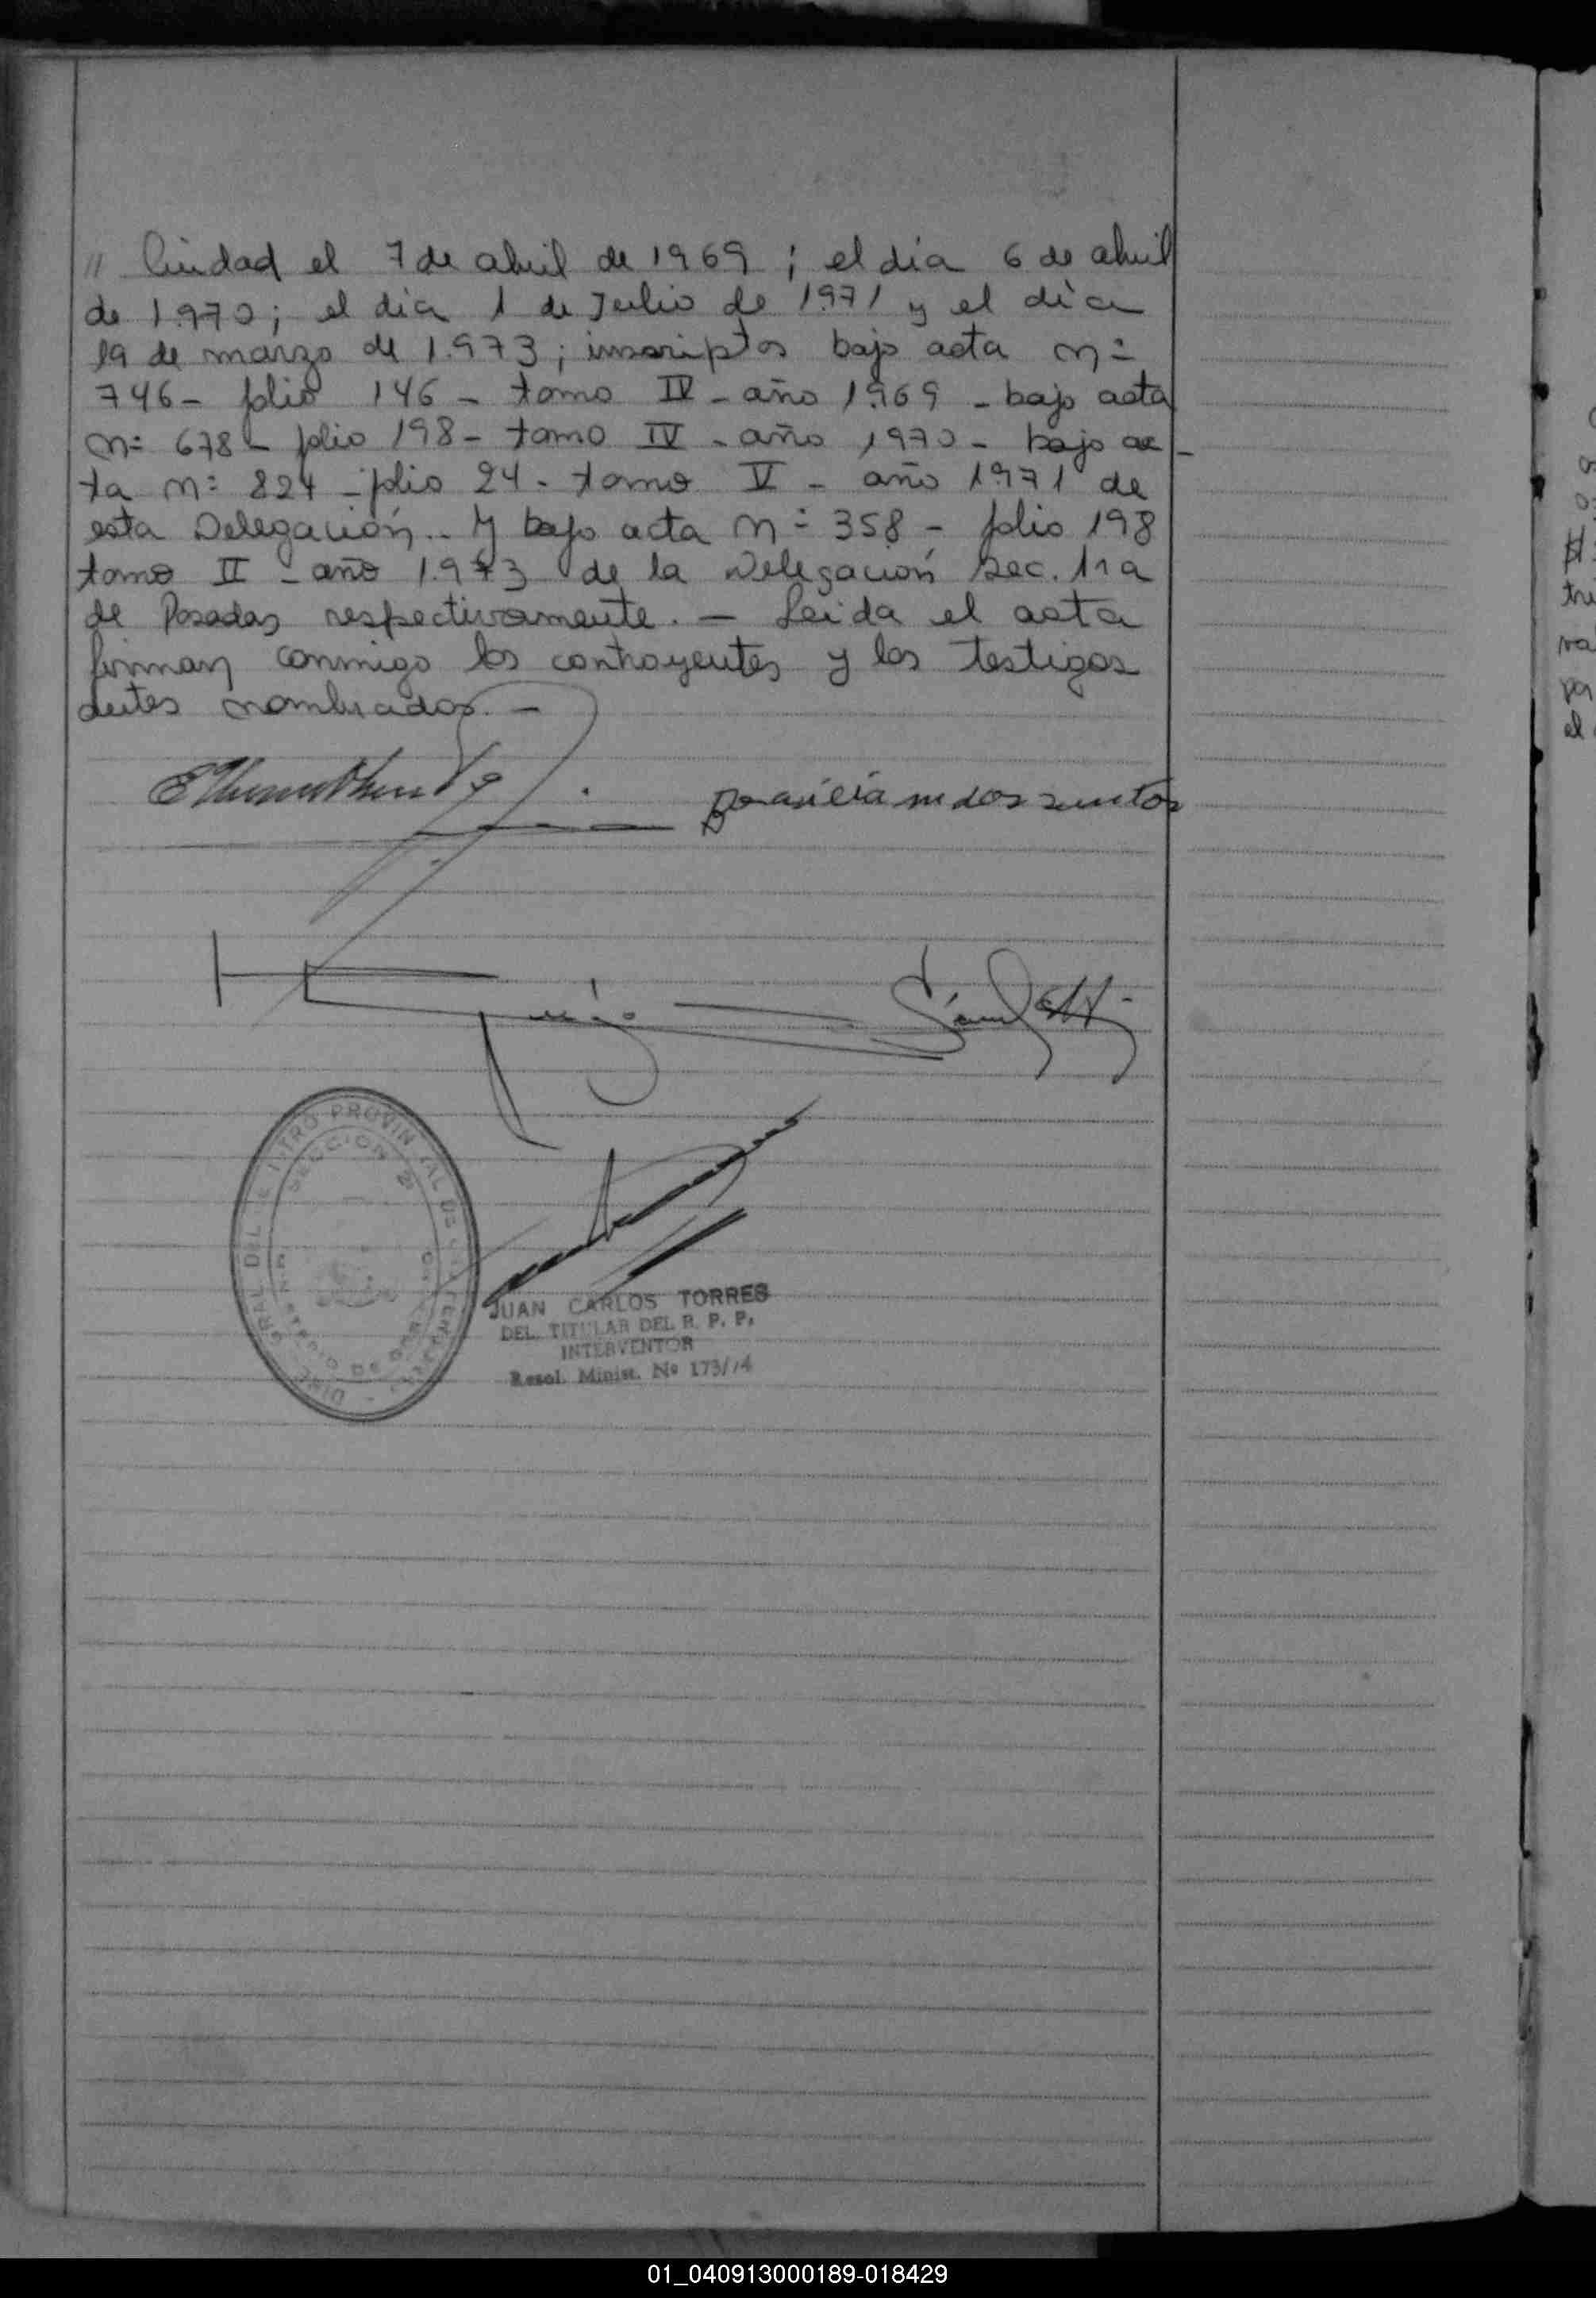 // Ciudad el 7 de abril de 1969; el día 6 de abril
de 1.970; el dia 1 de Julio de 1971 y el día
19 de marzo de 1.973; inscriptos bajo acta n=
746- folio 146 - tomo IV - año 1969 - bajo acta
n= 678 - folio 198 - tomo IV - año 1970 - bajo ac-
ta n= 824 - folio 24 - tomo V - año 1971 de
esta Delegación.. Y bajo acta n= 358 - folio 198
tomo II - año 1.973 de la Delegación Sec. 11a
de Posadas respectivamente. - Leida el acta
firman conmigo los contrayentes y los testigos
antes nombrados. -
dos santos
PROVIN
SECCION 2ª
GRAL DEL
JUAN CARLOS TORRES
DEL. TITULAR DEL R. P. P.
INTERVENTOR
Resol. Minist. Nº 173/74
tru
el
01_040913000189-018429